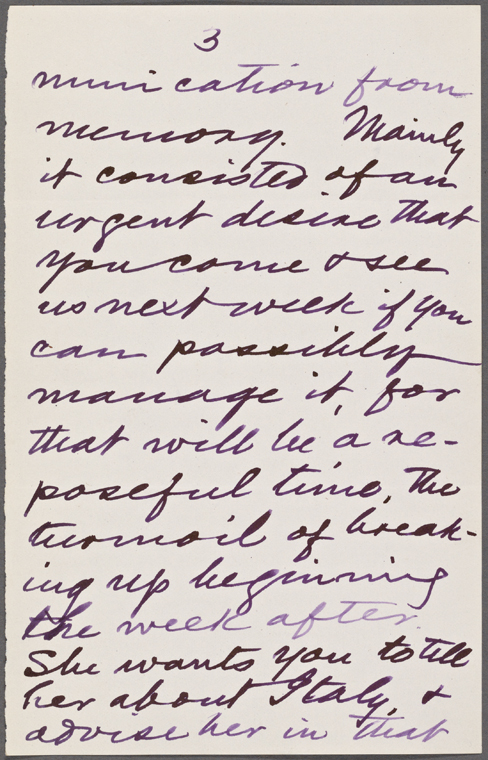 3
munication from
memory. Mainly
it consisted of an
urgent desire that
you come & see
us next week if you
can possibly
manage it, for
that will be a re-
poseful time, the
turmoil of break-
ing up beginning
the week after.
She wants you to tell
her about Italy, &
advise her in that